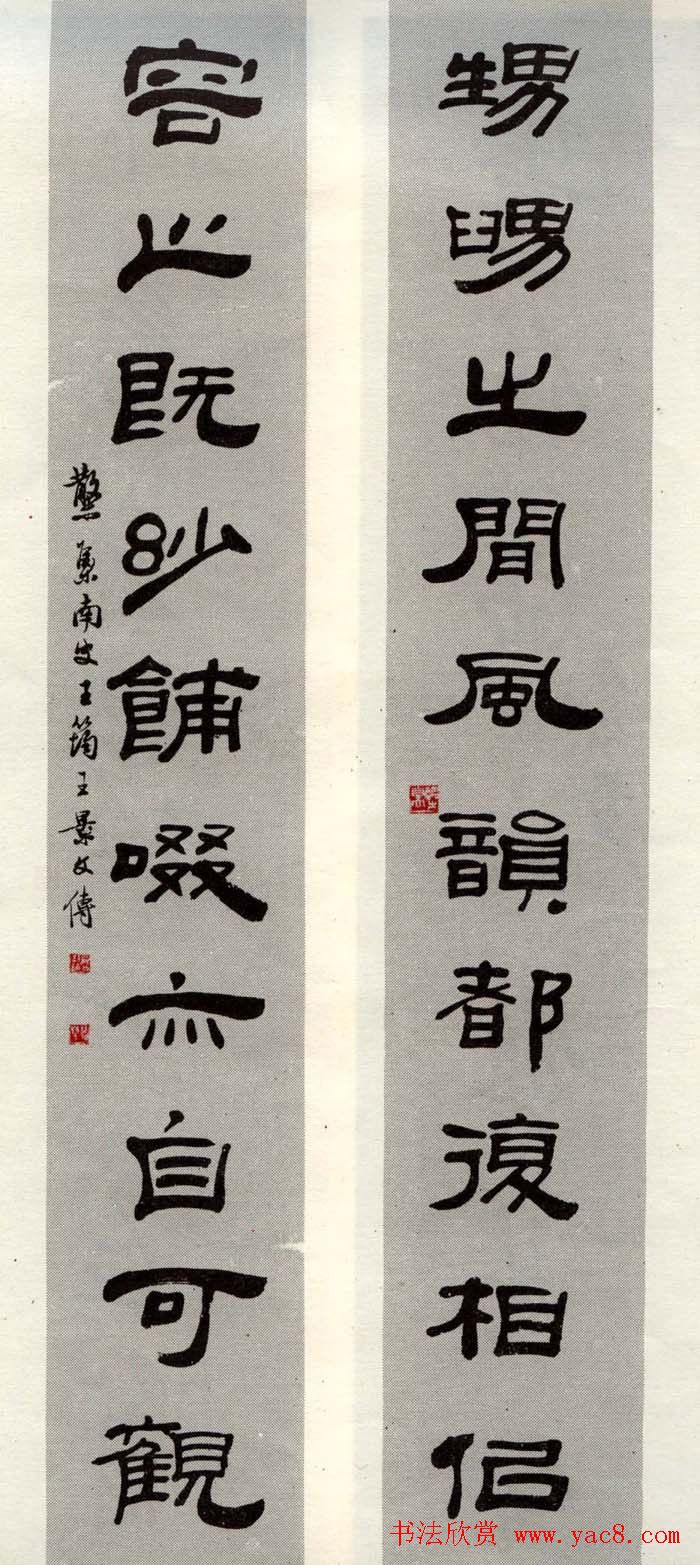 甥舅之間風韻都復相佀
容止既妙餔啜亦自可觀
集南史王筠王景文傳
书法欣赏 www.yac8.com